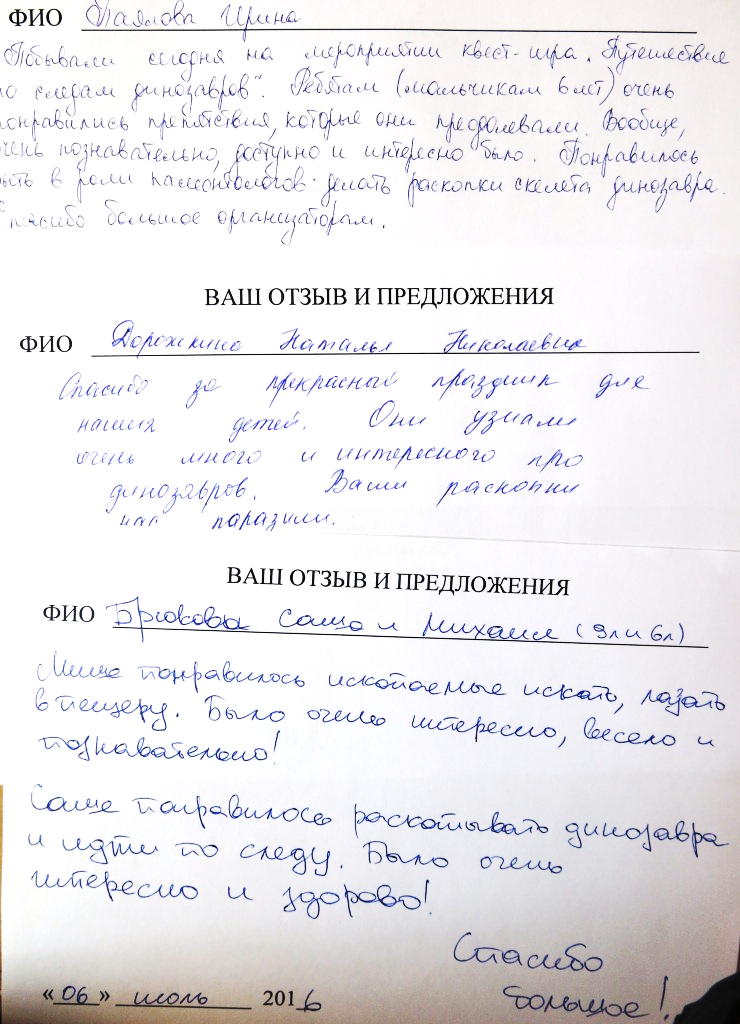 ФИО Паялова Ирина
Побывали сегодня на мероприятии квест-игра „Путешествие
по следам динозавров". Ребятам (мальчикам 6 лет) очень
понравились препятствия, которые они преодолевали. Вообще,
очень познавательно, доступно и интересно было. Понравилось
быть в роли палеонтологов: делать раскопки скелета динозавра.
Спасибо большое организаторам.
ВАШ ОТЗЫВ И ПРЕДЛОЖЕНИЯ
ФИО Дорожкина Наталья Николаевна
Спасибо за прекрасный праздник для
наших детей. Они узнали
очень много и интересного про
динозавров. Ваши раскопки
нас паразили.
ВАШ ОТЗЫВ И ПРЕДЛОЖЕНИЯ
ФИО Брюковы Саша и Михаил (9л и 6л)
Мише понравилось ископаемые искать, лазать
в пещеру. Было очень интересно, весело и
познавательно!
Саше понравилось раскапывать динозавра
и идти по следу. Было очень
интересно и здорово!
Спасибо
большое!
«06» июль 2016